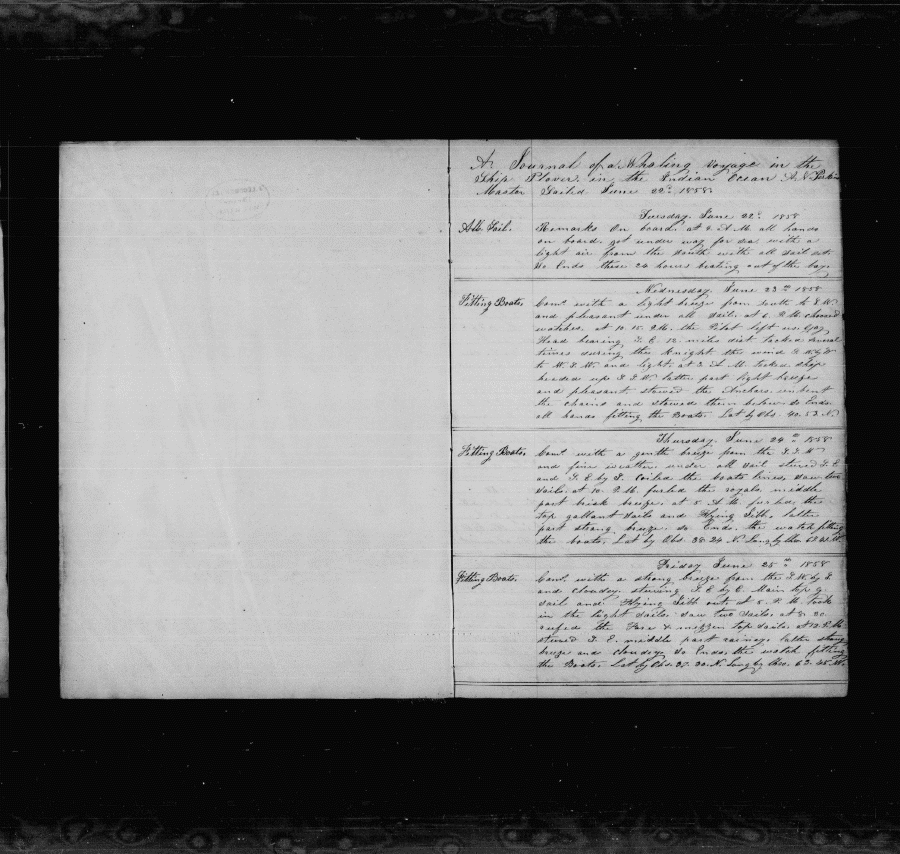 A Journal of a Whaling Voyage in the
Ship Plover in the Indian Ocean A. N. Perkins
Master Sailed June 22nd 1858
Tuesday June 22nd 1858
All Sail. Remarks On board. at 8 A.M. all hands
on board. got under way for sea with a
light air from the South with all sail set
So Ends these 24 hours beating out of the bay
Wednesday June 23rd 1858
Fitting Boats. Comd with a light breeze from South to S.W.
and pleasant under all sail. at 6 P.M. choosed
watches. at 10.15 P.M. the Pilot left us. Gay
Head bearing 12 miles dist. tacked several
times during the Knight the wind
to W.S.W. and light. at 3 A.M. tacked ship
headed up S.S.W. latter part light breeze
and pleasant. stowed the Anchors. unbent
the chains and stowed them below So Ends
all hands fitting the Boats. Lat by Obs. 40.53 N.
Thursday June 24th 1858
Fitting Boats. Comd with a gentle breeze from the S.S.W.
and fine weather. under all sail steered S.E.
and S.E. by S. Coiled the boats lines, saw two
sails. at 10 P.M. furled the royals. middle
part brisk breeze. at 5 A.M. furled the
top gallant sails and Flying Jibb. latter
part strong breeze. so Ends. the watch fitting
the boats. Lat by Obs. 38.24 N. Long by Chro.
Friday June 25th 1858
Fitting Boats. Comd with a strong breeze from the S.W. by S.
and cloudey. steering S.E. by E. Main top g.
sail and Flying Jibb out. at 5 P.M. took
in the light sails. saw two sails. at 8.20
reefed the Fore & mizzen top sails. at 12 P.M.
steered S.E. middle part rainey. latter strong
breeze and cloudey. So Ends. the watch fitting
the Boats. Lat by Obs. 37.30 N. Long by Chro. 62.45 W.